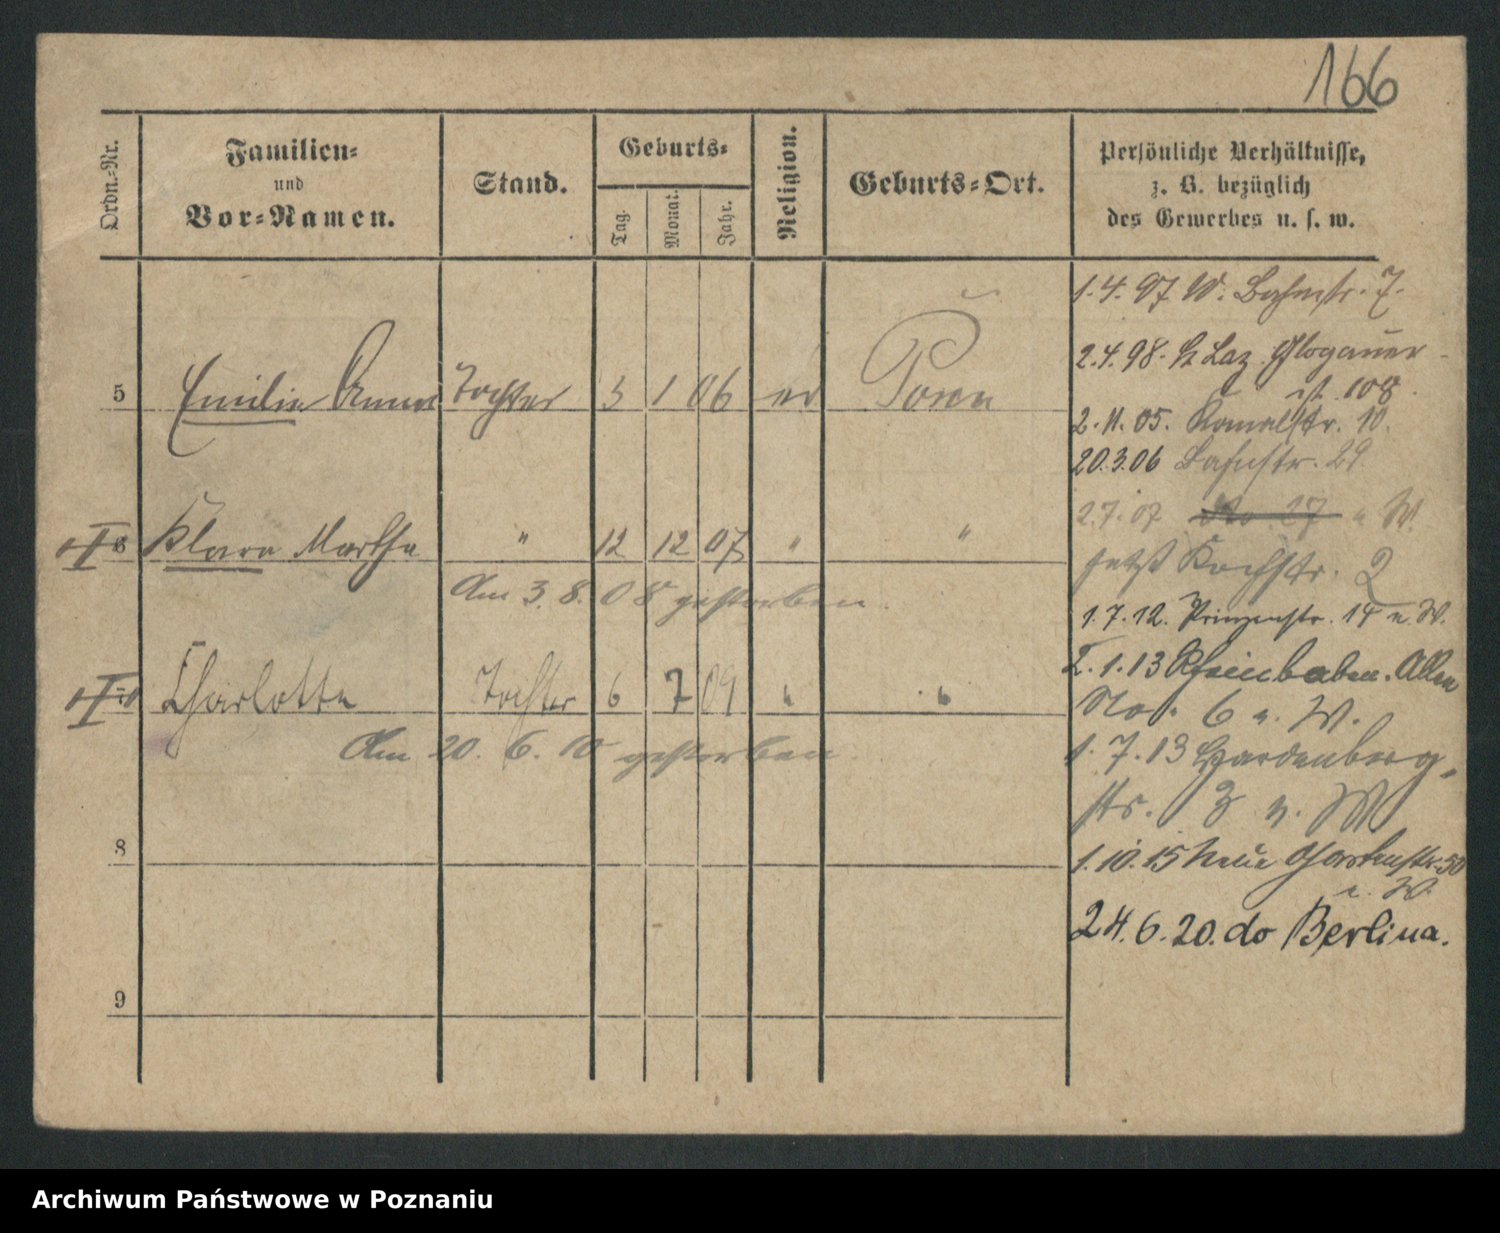 166
Ordn.-Nr.
Familien-
und
Vor-Namen.
Stand.
Geburts-
Tag.
Monat.
Jahr.
Religion.
Geburts-Ort.
Persönliche Verhältnisse,
z. B. bezüglich
des Gewerbes u. s. w.
5 Emilie Anna Tochter 3 1 06 ev Posen
6 Klara Martha " 12 12 07 " "
Am 3. 8. 08 gestorben.
Charlotte Tochter 6 7 09 " "
Am 20. 6. 10 gestorben.
8
9
1. 4. 97 W. Bahnstr. 7.
2. 4. 98. St Laz. Glogauer
str. 108.
2. 11. 05. Kanalstr. 10.
20. 3. 06 Bahnstr. 29.
2.7.07 No 27 u W.
jetzt Kochstr. 2
1. 7. 12. Prinzenstr. 14 u. W.
2. 1. 13 Rheinbaben. Allee
No. 6 u. W.
1. 7. 13 Hardenberg-
str. 3 u. W
1. 10. 15 Neue Gartenstr. 50
u. W.
24. 6. 20. do Berlina.
Archiwum Państwowe w Poznaniu